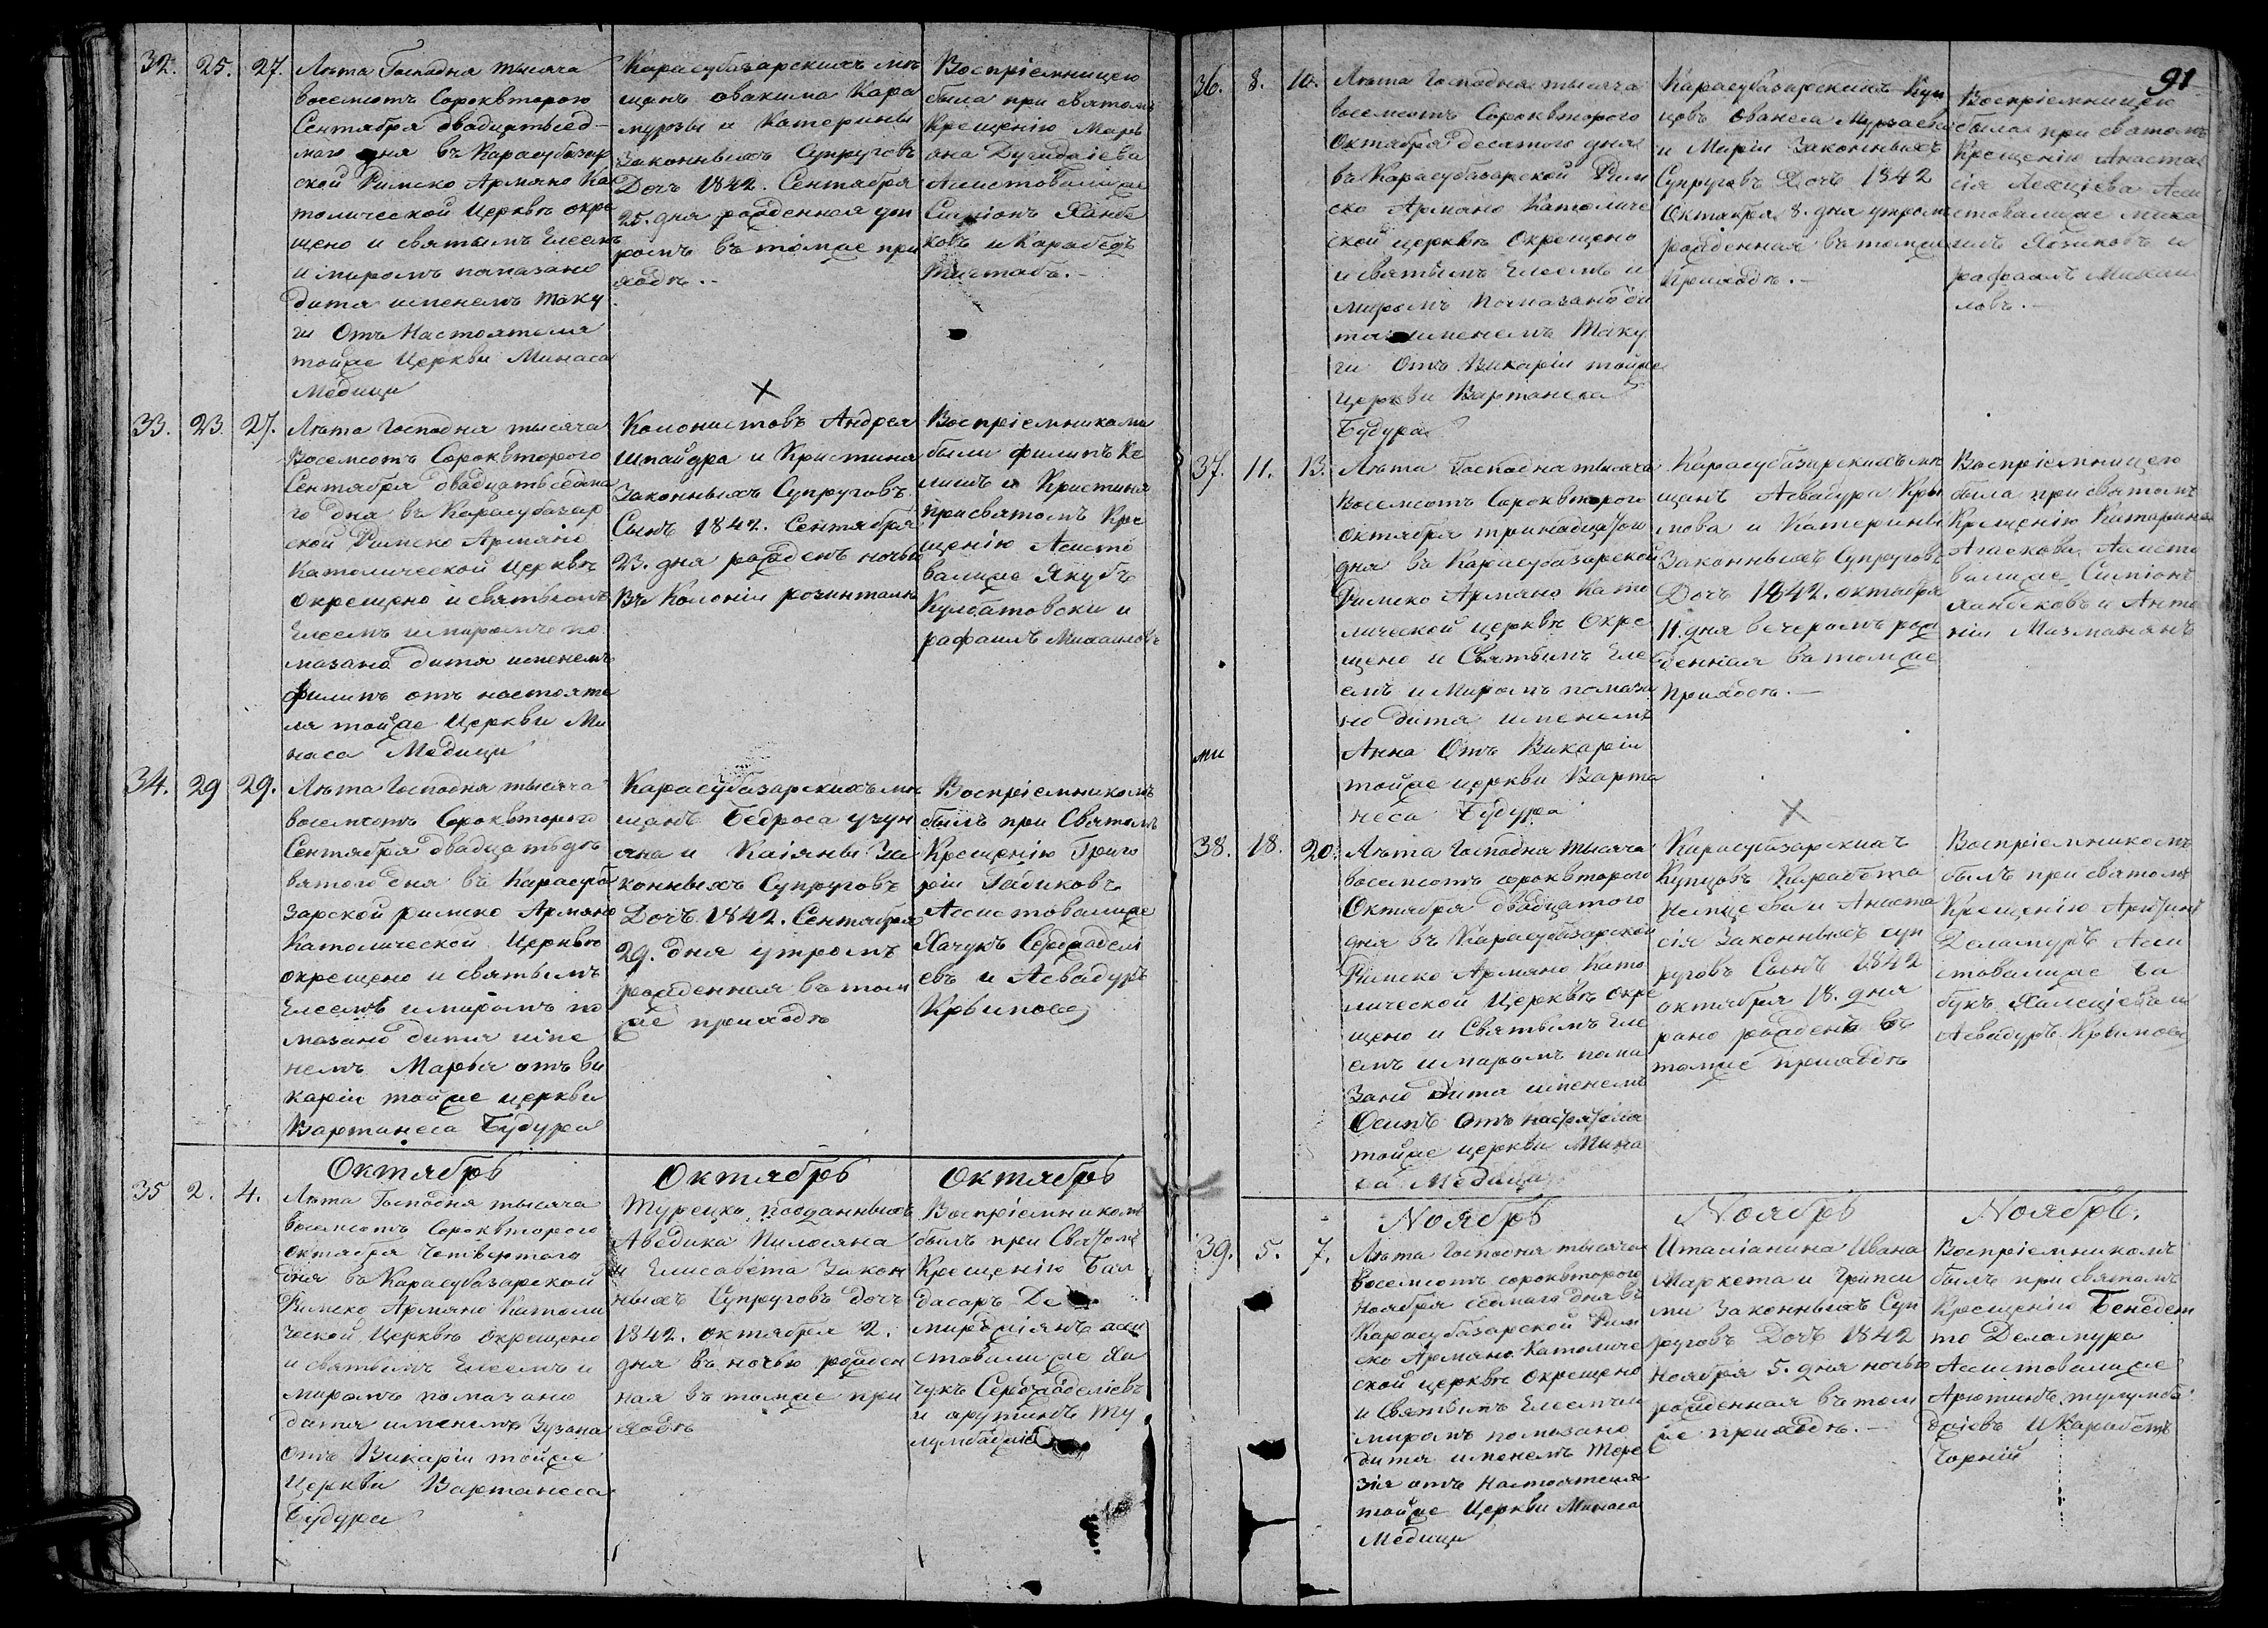 32. 25. 27. Лѣта Господня тысяча
восемсотъ Сороквторого
Сентября двадцатьсед-
маго дня въ Карасубазар
ской Римско Армяно Ка
толической Церквѣ окре
щено и святымъ Елеемъ
и миромъ помазано
дитя именемъ Таку
ги Отъ Настоятеля
тойже Церкви Минаса
Медици
Карасубазарскихъ мѣ
щанъ Овакима Кара
мурзы и Катерины
Законныхъ Супруговъ
Дочъ 1842. Сентября
25. дня рожденная ут
ромъ въ томже при
ходѣ.-
Воспріемницею
была при святомъ
Крещенію Марь
яна
Асистовалиже
Симіонъ Ханбе
ковъ и Карабедъ
33. 23. 27. Лѣта Господня тысяча
Восемсотъ Сороквторого
Сентября двадцатьседма
го дня въ Карасубазар
ской Римско Армяно
Католической Церквѣ
окрещено и святымъ
Елеемъ и миромъ по
мазано дитя именемъ
Филипъ отъ настояте
ля тойже Церкви Ми
наса Медици
Колонистовъ Андрея
Шнайдра и Кристина
Законныхъ Супруговъ
Сынъ 1842. Сентября
23. дня рожденъ ночью
Въ Колоніи розинталь
Воспріемниками
были филипъ Ке
лишъ и Кристина
при святомъ Кре
щенію Асисто
валиже Якубъ
Кулбатовски и
рафаилъ Михаиловъ
34. 29 29. Лѣта Господня тысяча
восемсотъ Сороквторого
Сентября двадцатьде
вятого дня въ Карасуба
зарской римско Армяно
Католической Церквѣ
окрещено и святымъ
Елеемъ и миромъ по
мазано дитя име
немъ Марья отъ ви
карія тойже церкви
Вартанеса Будура
Карасубазарскихъ мѣ
щанъ Бедроса учун
яна и Каіяны За
конныхъ Супруговъ
Дочъ 1842. Сентября
29. дня утромъ
рожденная въ том
же приходѣ
Воспріемникомъ
былъ при Святомъ
Крещенію Григо
рій
Ассистовалиже
Хачукъ
евъ и Асвадуръ
Крымовъ
Октябрь
35 2. 4. Лѣта Господня тысяча
восемсотъ Сороквторого
октября четвертого
дня въ Карасубазарской
Римско Армяно Католи
ческой Церквѣ окрещено
и святымъ Елеемъ и
миромъ помазано
дитя именемъ Зузана
отъ Викарія тойже
Церкви Вартанеса
Будура
Октябрь
Турецко подданныхъ
Аведика Пилосяна
и Елисабета Закон
ныхъ Супруговъ дочъ
1842. октября 2.
дня въ ночью рожден
ная въ томже при
ходѣ
Октябрь
Воспріемникомъ
былъ при Святомъ
Крещенію Бал
дасаръ Де
асси
стовалиже Ха
чукъ
и арутинъ Ту
91
36. 8. 10. Лѣта Господня тысяча
восемсотъ Сороквторого
Октября десятого дня
въ Карасубазарской Рим
ско Армяно Католиче
ской церквѣ Окрещено
и святымъ Елеемъ и
миромъ помазано ди
тя именемъ Таку
ги Отъ Викарія тойже
церкви Вартанеса
Будура
Карасубазарскихъ Куп
цовъ Ованеса Мурзаева
и Маріи Законныхъ
Супруговъ Дочъ 1842
Октября 8. дня утромъ
рожденная въ томже
Приходѣ.-
Воспріемницею
была при святомъ
Крещенію Анаста
сія Асси
стовалиже Миха
илъ и
рафаилъ Михаи
ловъ.-
37. 11. 13. Лѣта Господня тысяча
Восемсотъ Сороквторого
октября тринадцатого
дня въ Карасубазарской
Римско Армяно Като
лической церквѣ Окре
щено и Святымъ Еле
емъ и Миромъ помаза
но дитя именемъ
Анна Отъ Викарія
тойже церкви Варта
неса Будура
Карасубазарскихъ мѣ
щанъ Асвадура Кры
мова и Катерины
Законныхъ Супруговъ
Дочъ 1842. октября
11. дня вечеромъ рож
денная въ томже
Приходѣ.-
Воспріемницею
была при святомъ
Крещенію Катарина
Ассисто
валиже Симіонъ
Ханбековъ и Анто
ній Мазманянъ
38. 18. 20. Лѣта Господня тысяча
восемсотъ сороквторого
Октября двадцатого
дня въ Карасубазарской
Римско Армяно Като
лической Церквѣ окре
щено и Святымъ Еле
емъ и миромъ пома
зано дитя именемъ
Осипъ отъ настоятеля
тойже церкви Мина
са Медици
Карасубазарскихъ
Купцовъ Карабета
и Анаста
сія Законныхъ суп
руговъ Сынъ 1842
октября 18. дня
рано рожденъ въ
томже приходѣ
Воспріемникомъ
былъ при святомъ
Крещенію
Деламуръ Асси
стовалиже
и
Асвадуръ Крымовъ
Ноябрь
39. 5. 7. Лѣта Господня тысяча
восемсотъ сороквторого
ноября седмаго дня въ
Карасубазарской Рим
ско Армяно Католиче
ской церквѣ окрещено
и Святымъ Елеемъ и
миромъ помазано
дитя именемъ Тере
зія отъ Настоятеля
тойже Церкви Минаса
Медици
Ноябрь
Италіанина Ивана
Маркета и Грипси
ми Законныхъ Суп
руговъ Дочъ 1842
Ноября 5. дня ночью
рожденная въ том
же приходѣ.-
Ноябрь.
Воспріемникомъ
былъ при святомъ
Крещенію Бенедет
то Деламура
Ассистовалиже
Арютинъ тулумба
джіевъ и Карабетъ
Чорній